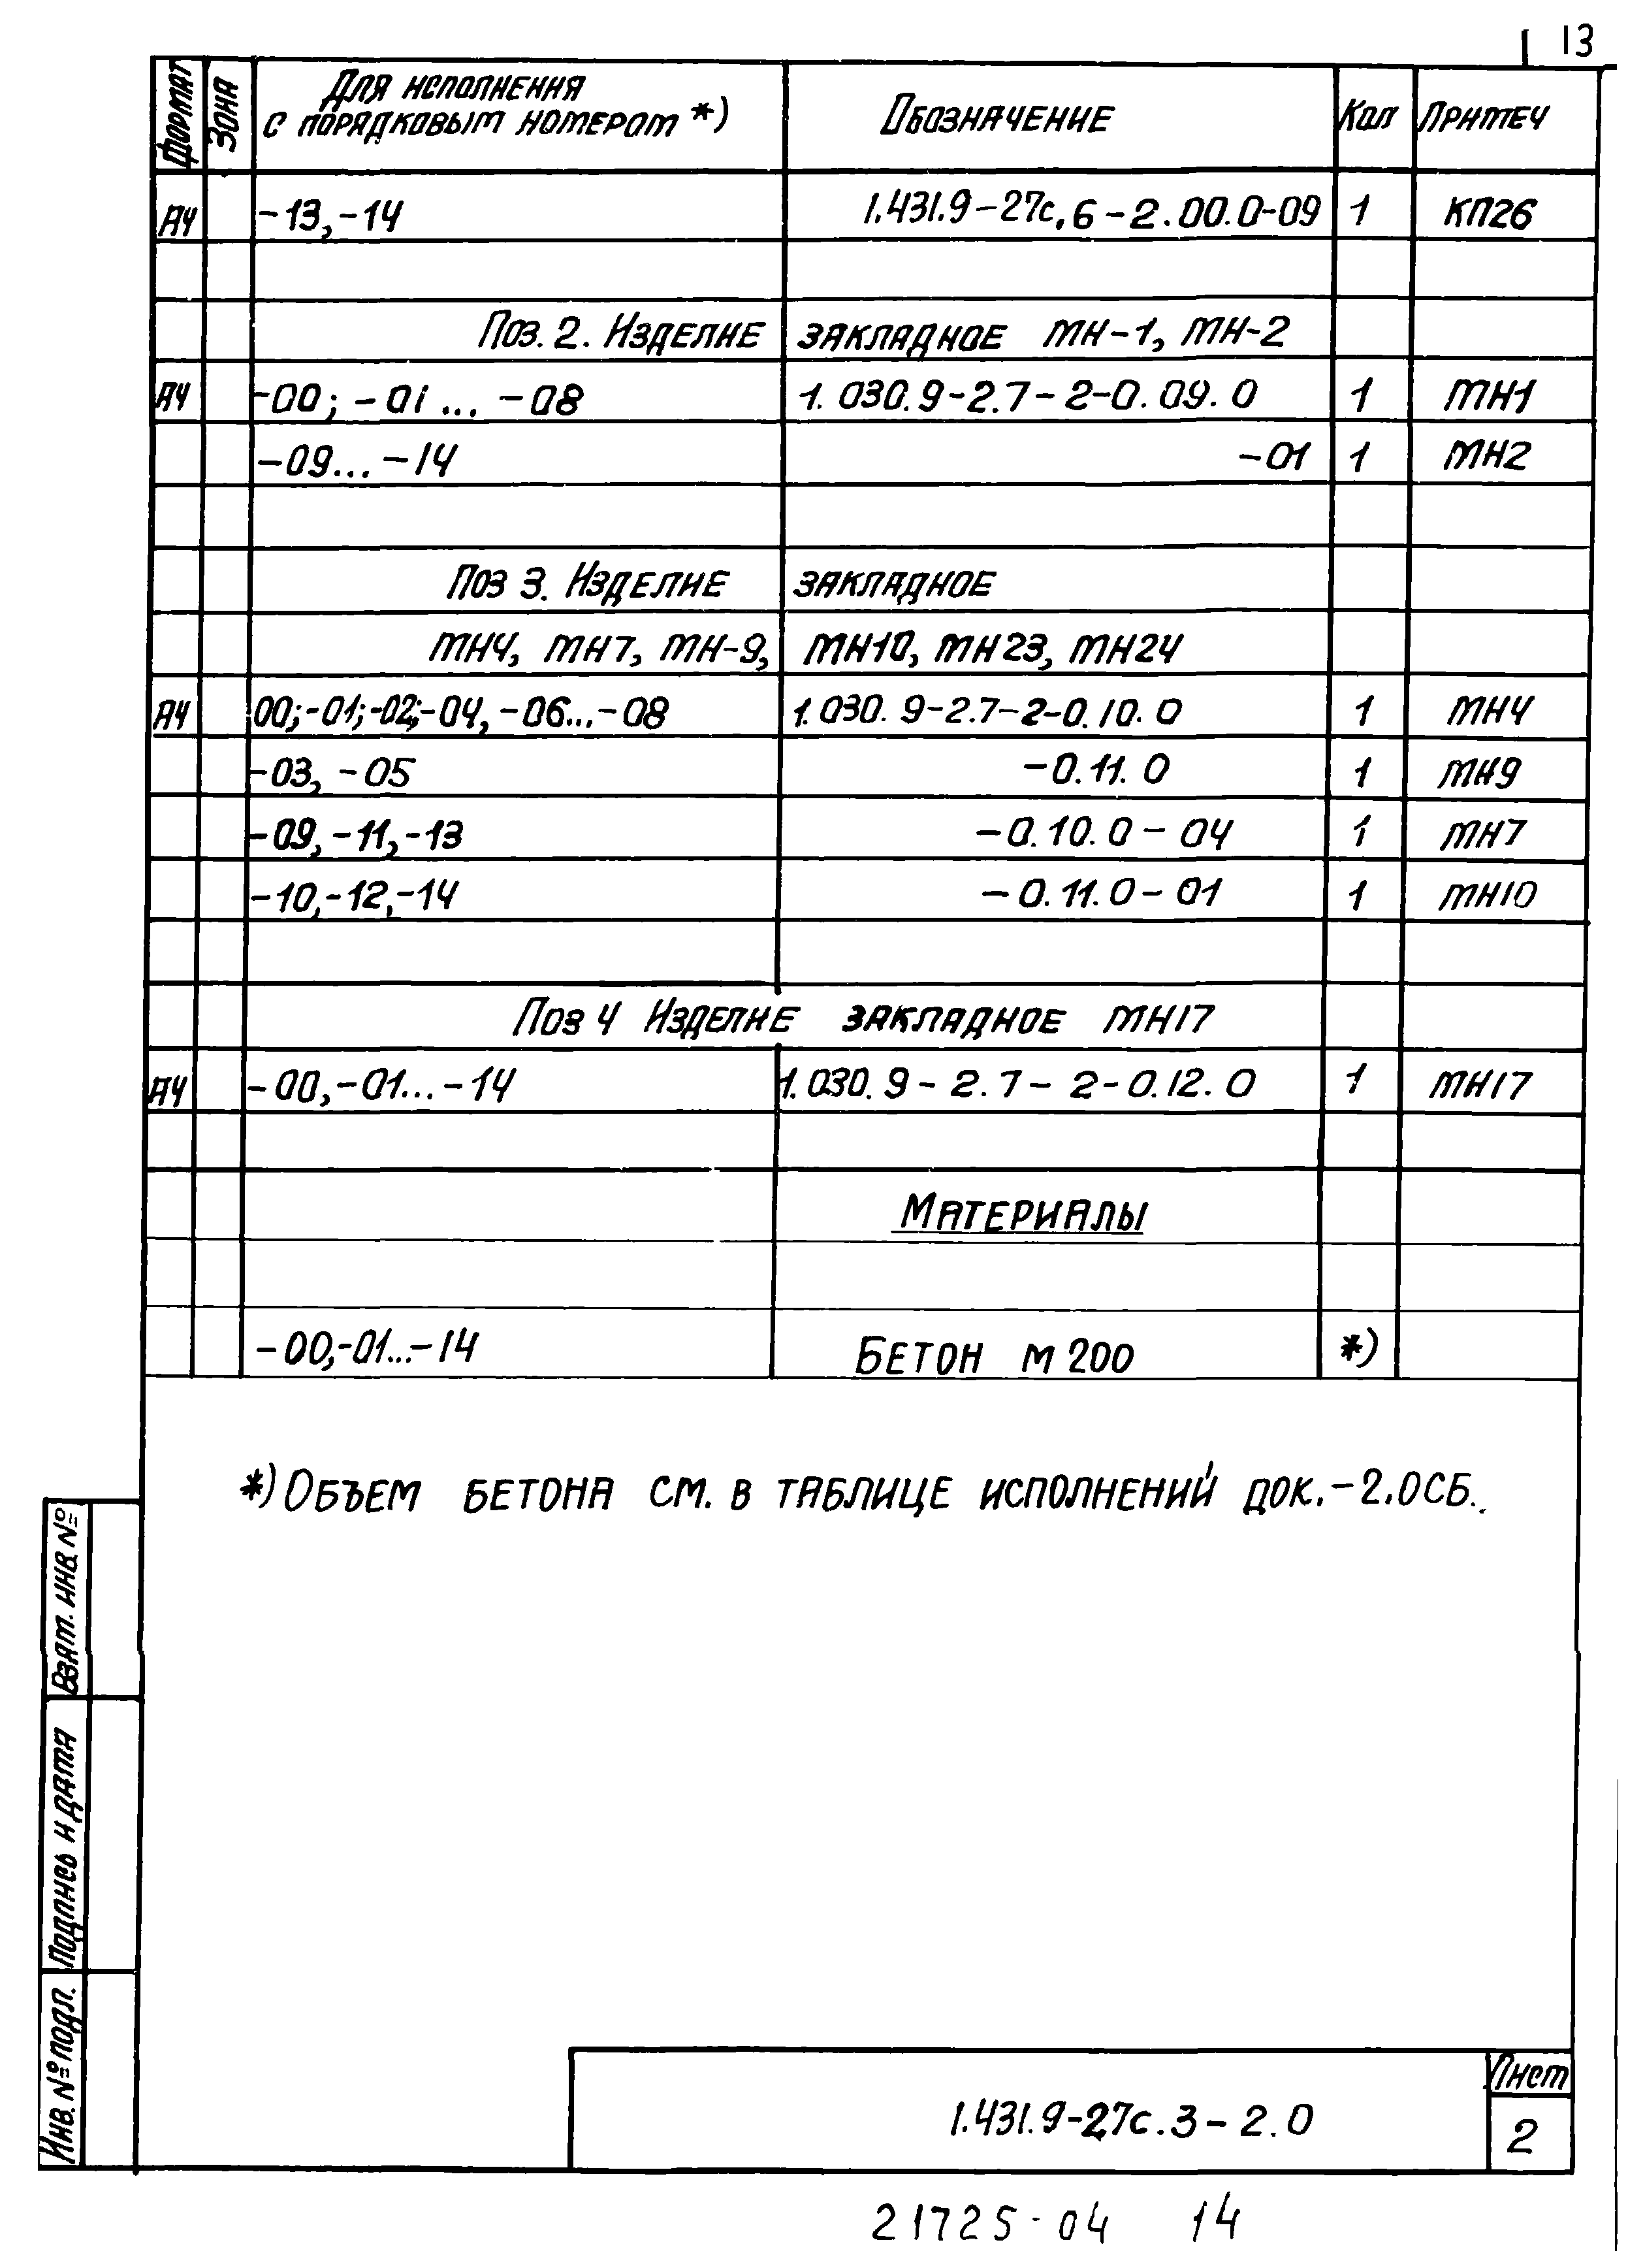 13
Формат Зона Для исполнения с порядковым номером *) Обозначение Кол Примеч
А4 -13,-14 1.431.9-27с.6-2.00.0-09 1 КП26
Поз. 2. Изделие закладное МН-1, МН-2
А4 -00; -01... -08 1.030.9-2.7-2-0.09.0 1 МН1
-09... -14 -01 1 МН2
Поз 3. Изделие закладное
МН4, МН7, МН-9, МН10, МН23, МН24
А4 00;-01;-02;-04, -06...-08 1.030.9-2.7-2-0.10.0 1 МН4
-03, -05 -0.11.0 1 МН9
-09,-11,-13 -0.10.0-04 1 МН7
-10,-12,-14 -0.11.0-01 1 МН10
Поз 4 Изделие закладное МН17
А4 -00,-01...-14 1.030.9-2.7-2-0.12.0 1 МН17
Материалы
-00,-01...-14 Бетон М 200 *)
*) Объем бетона см. в таблице исполнений док.-2.0СБ.
Взам. инв №
Подпись и дата
Инв. № подл.
1.431.9-27с.3-2.0
Лист
2
21725-04 14